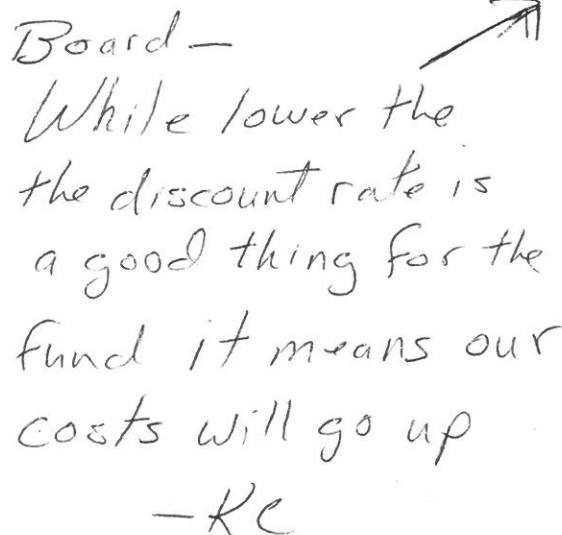 Board—
While lower the
the discount rate is
a good thing for the
fund it means our
costs will go up
—KC